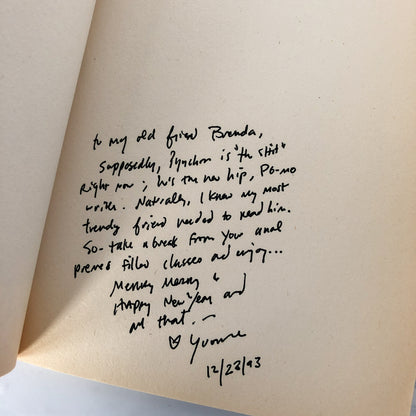 to my old friend Brenda,
Supposedly, Pynchon is "the shit"
right now; he's the new hip, Po-mo
writer. Naturally, I knew my most
trendy friend needed to read him.
So- take a break from your anal
premed filled classes and enjoy...
Merry Merry &
Happy New Year and
all that. —
♡ Yvonne
12/23/93